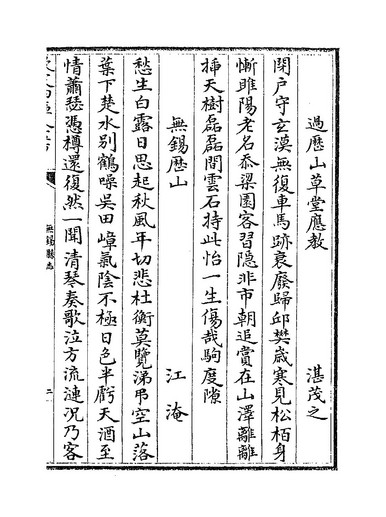 過歷山草堂應教 湛茂之
閉戶守玄漠無復車馬跡衰廢歸邱樊歲寒見松栢身
慚雎陽老名忝梁園客習隐非市朝追賞在山澤離離
揷天樹磊磊間雲石持此怡一生傷哉駒度隙
無錫歴山 江淹
愁生白露日思起秋風年切悲杜衡莫覽涕弔空山落
葉下楚水别鶴噪吳田嶂氣陰不極日色半虧天酒至
情蕭瑟憑樽還復然一聞清琴奏歌泣方流漣况乃客
無錫縣志